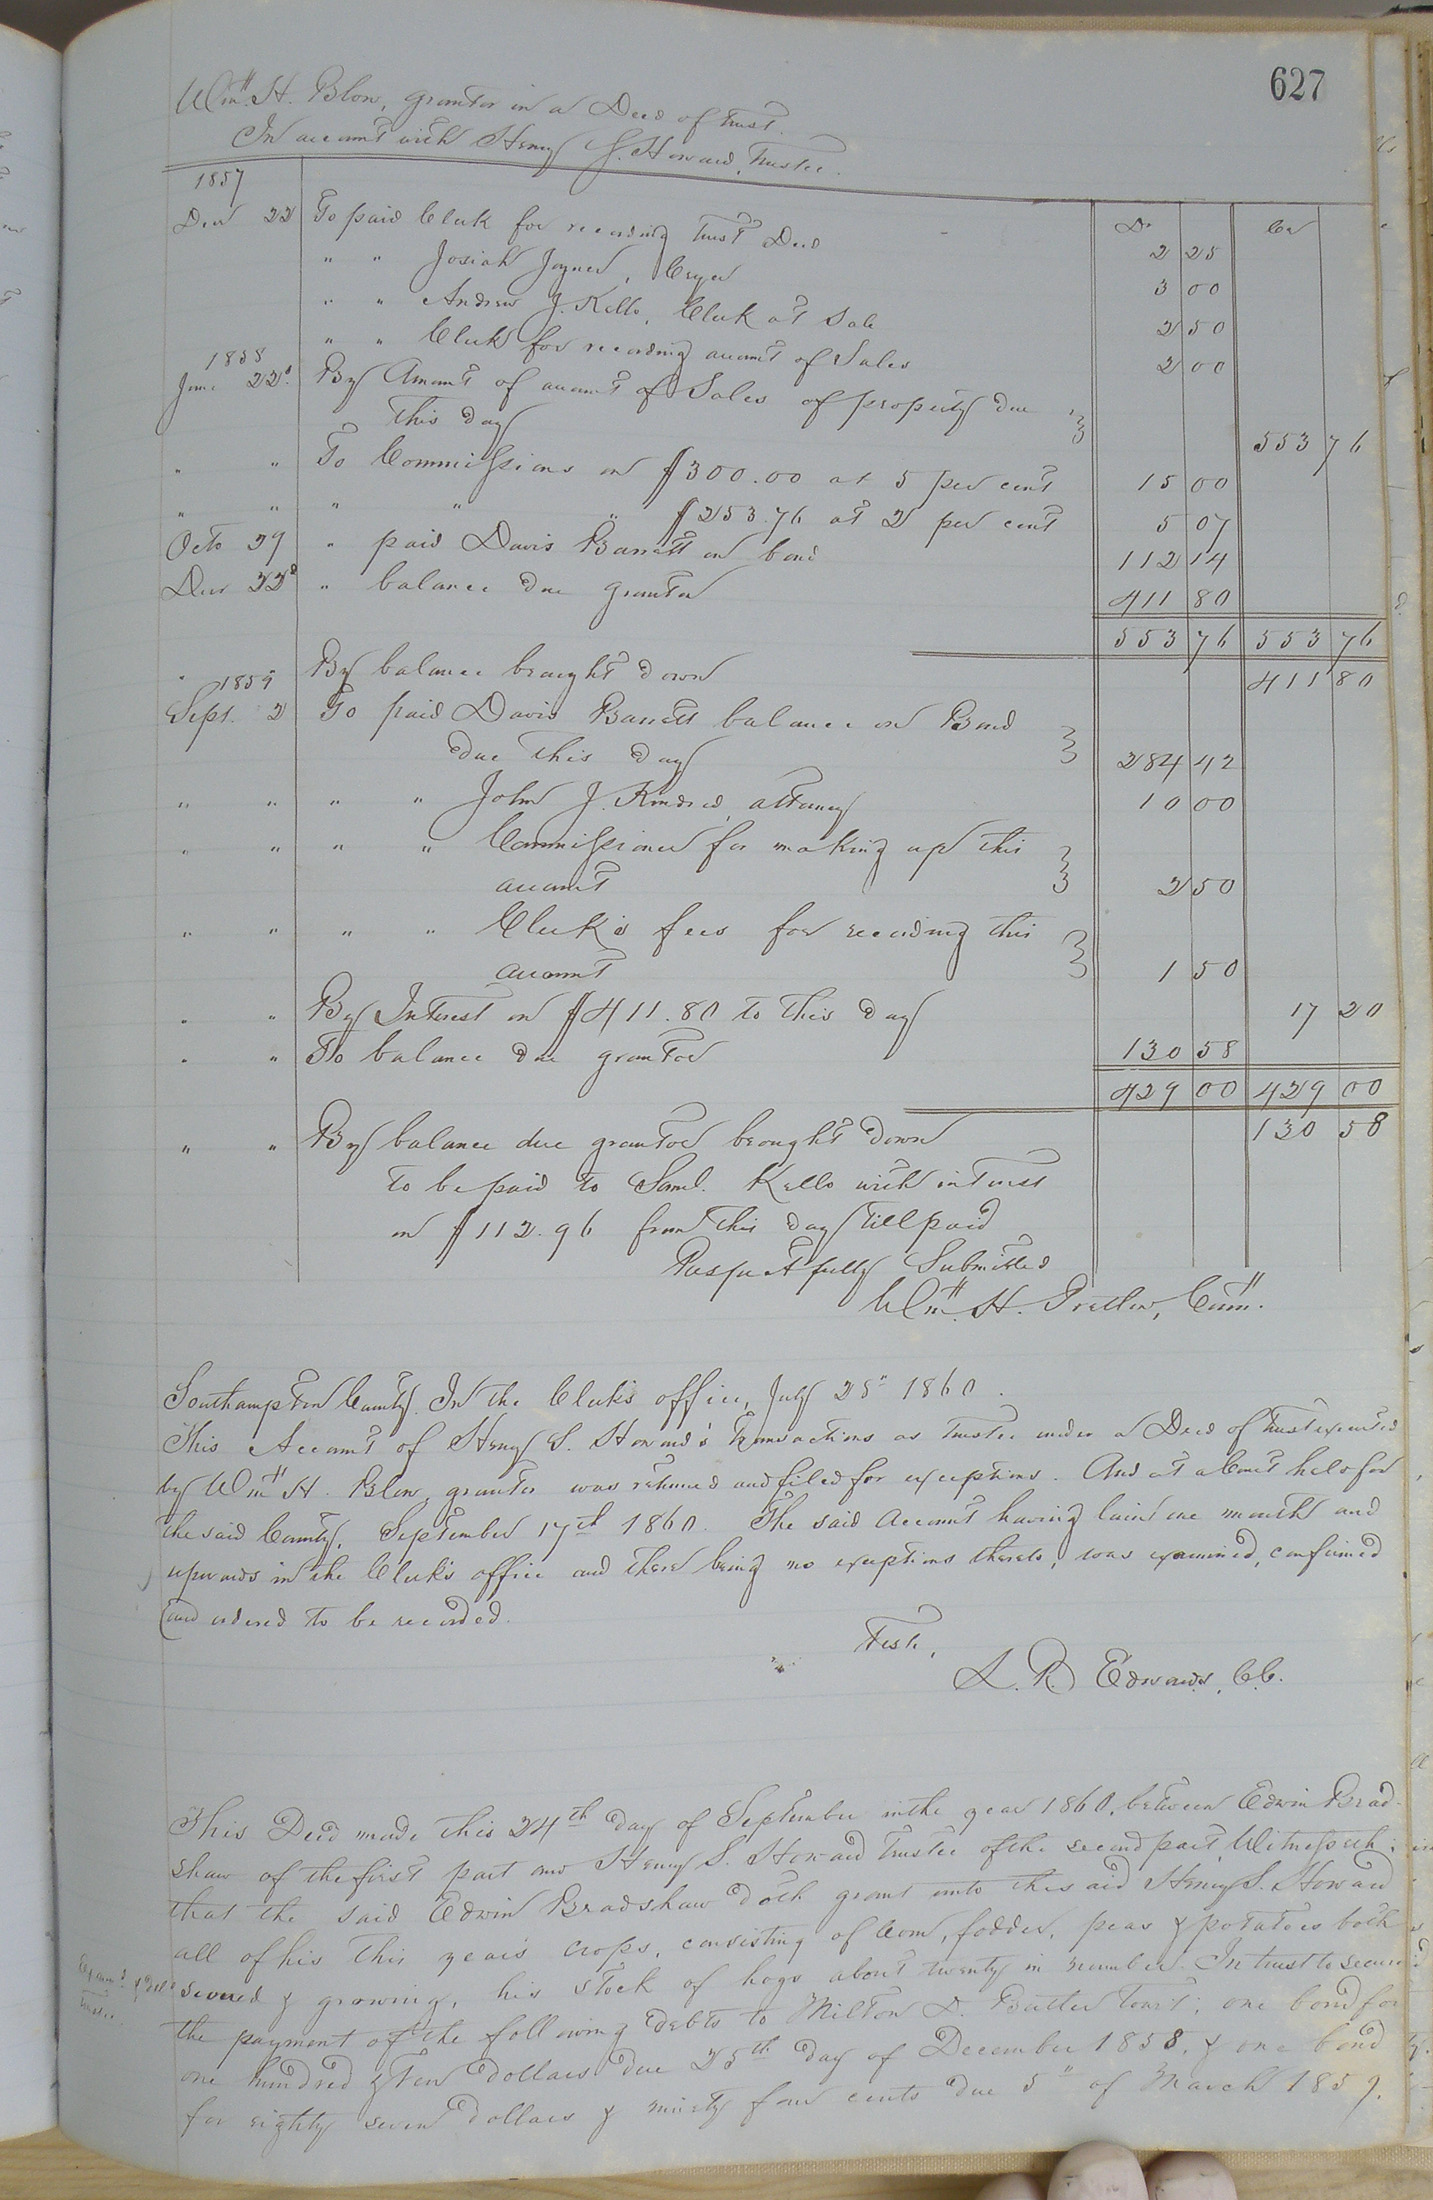 627
Wm. H. Blow, grantor in a Deed of trust.
In account with Henry S. Howard, Trustee.
1857 Dr Cr
Decr 22 To paid Clerk for recording trust Deed 2 25
" " Josiah Joyner, Cryer 3 00
" " Andrew J. Kello, Clerk at Sale 2 50
" " Clerk for recording account of Sales 2 00
1858
June 22d. By Amount of account of Sales of property due
this day 553 76
" " To Commissions on $300.00 at 5 per cent 15 00
" " " " " $253.76 at 2 per cent 5 07
Octo 29 " paid Davis Barrett on bond 112 14
Decr 22d " balance due grantor 411 80
553 76 553 76
" By balance brought down 411 80
1859
Sept. 2 To paid Davis Barrett balance on Bond
due this day 284 42
" " " " John J. Kindred, attorney 10 00
" " " " Commissioner for making up this
account 2 50
" " " " Clerk's fees for recording this
account 1 50
" " By Interest on $411.80 to this day 17 20
" " To balance due grantor 130 58
429 00 429 00
" " By balance due grantor brought down 130 58
to be paid to Saml. Kello with interest
on $112.96 from this day till paid
Respectfully Submitted
Wm. H. Pretlow, Comr.
Southampton County. In the Clerk's office, July 25" 1860.
This Account of Henry S. Howard's transactions as trustee under a Deed of trust executed
by Wm. H. Blow, grantor was returned and filed for exceptions. And at a Court held for
the said County, September 17th 1860. The said Account having lain one month and
upwards in the Clerk's office and there being no exceptions thereto, was examined, confirmed
and ordered to be recorded.
Teste,
L. R. Edwards, C.C.
This Deed made this 24th day of September in the year 1860, between Edwin Brad-
shaw of the first part and Henry S. Howard Trustee of the second part, Witnesseth:
that the said Edwin Bradshaw doth grant unto the said Henry S. Howard
all of his this years crops, consisting of Corn, fodder, peas & potatoes both
Exam'd & Del'd severed & growing, his stock of hogs about twenty in number. In trust to secure
the payment of the following debts to Milton D. Butler Towit; one bond for
one hundred & ten dollars due 25th day of December 1858, & one bond
for eighty seven dollars & ninety four cents due 5" of March 1859.